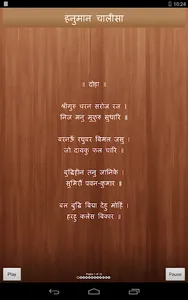 10:24
हनुमान चालीसा
॥ दोहा ॥
श्रीगुरु चरन सरोज रज ।
निज मनु मुकुरु सुधारि ॥
बरनऊँ रघुबर बिमल जसु ।
जो दायकु फल चारि ॥
बुद्धिहीन तनु जानिके ।
सुमिरौं पवन-कुमार ॥
बल बुद्धि बिद्या देहु मोहिं ।
हरहु कलेस बिकार ॥
Play
Pause